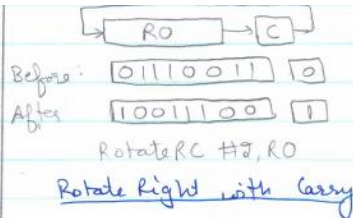 R0 C
Before: 01110011 0
After 10011100 1
RotateRC #2, R0
Rotate Right with Carry